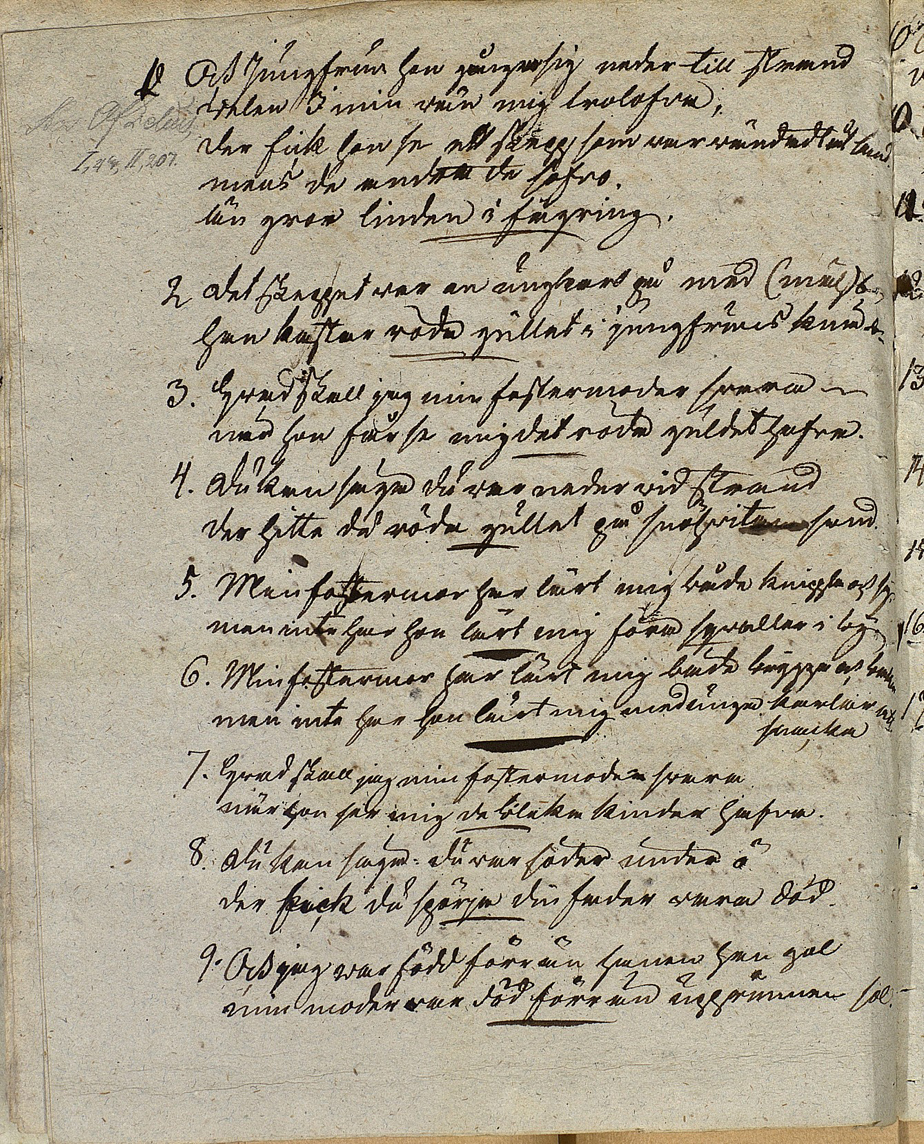 1 Och Jungfrun hon gångar sig neder till strand
Welen I min wän mig trolofva,
der fick hon se ett skepp som war wändadt åt land
mens de andra de sofvo.
än gror linden i fagring.
Hos Afzelius
2 Det skeppet war en ungkarl på med
han kastar röda gullet i jungfruns knä
3. Hvad skall jag min fostermoder swara
när hon får se mig det röda guldet hafva.
4. Du kan säga du war neder vid strand
der hitte du röda gullet på snöhvitan sand.
5. Min fostermor har lärt mig både knippla och sy
men inte har hon lärt mig föra sqvaller i by
6. Min fostermor har lärt mig både brygga och baka
men inte har hon lärt mig med unga karlar att
snacka
7. Hvad skall jag min fostermoder swara
när hon ser mig de bleka kinder hafva.
8. Du kan säga: du war söder under ö
der fick du spörja din fader vara död.
9. Och jag war född förr än hanen han gol
min moder war död förr än upprunnen sol.